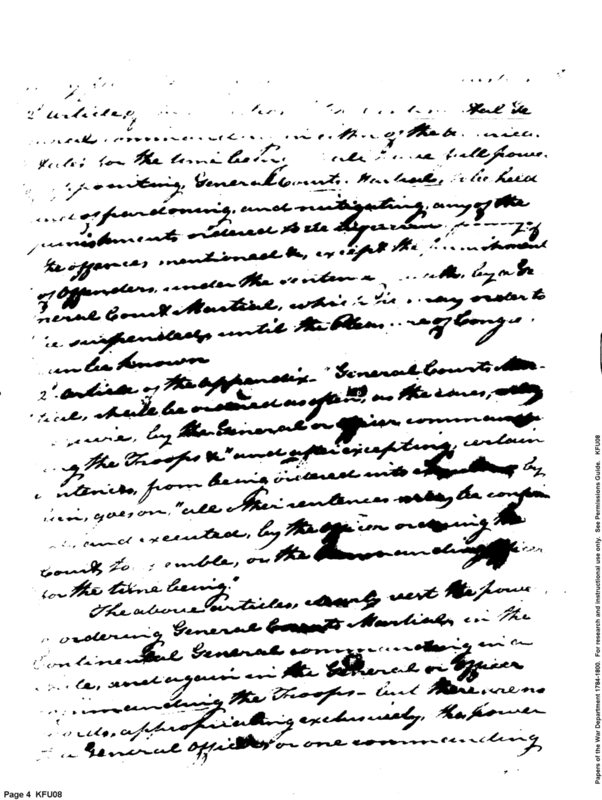 2d article of
neral commanding in either of the
States for the time being shall have full power
of appointing, General Courts Martial, to be held
and of pardoning, and mitigating, any of the
punishments ordered to be
the offences mentioned &c, except the punishment
of Offenders, under the sentence by a Ge
neral Court Martial, which he may order to
be suspended, until the Pleasure of Congress
can be known
2d article of the appendix - "General Courts Mar-
tial, shall be ordered as often, as the cases, may
require, by the General or officer command
ing the Troops &c" and after excepting, certain
sentences, from being ordered into by
him, goes on, "all other sentences may be confirm
ed and executed, by the officer ordering the
Court to assemble, or the commanding officer
for the time being."
The above articles, clearly vest the power
of ordering General Courts Martial, in the
Continental General commanding in a
State, and again in the General or Officer
commanding the Troops - but there are no
words, appropriating exclusively, the power
to a General Officer, or one commanding
Page 4 KFU08
Papers of the War Department 1784-1800. For research and instructional use only. See Permissions Guide. KFU08